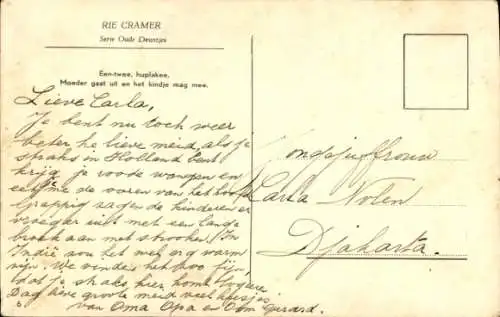 RIE CRAMER
Serie Oude Deuntjes
Een-twee, huplakee,
Moeder gaat uit en het kindje mag mee.
Lieve Carla,
Je bent nu toch weer
beter he lieve meid, als je
straks in Holland bent
krijg je roode wangen en
eet me de ooren van het hoofd
Grappig zagen de kinderen er
vroeger uit met een lange
broek aan met strooken. In
Indië zou het wel erg warm
zijn. We vonden het zoo fijn
dat je straks hier komt logeeren
Dag lieve groote meid veel kusjes
van Oma Opa en Oom Gerard.
ondejuffrouw
Carla Nolen
Djakarta.